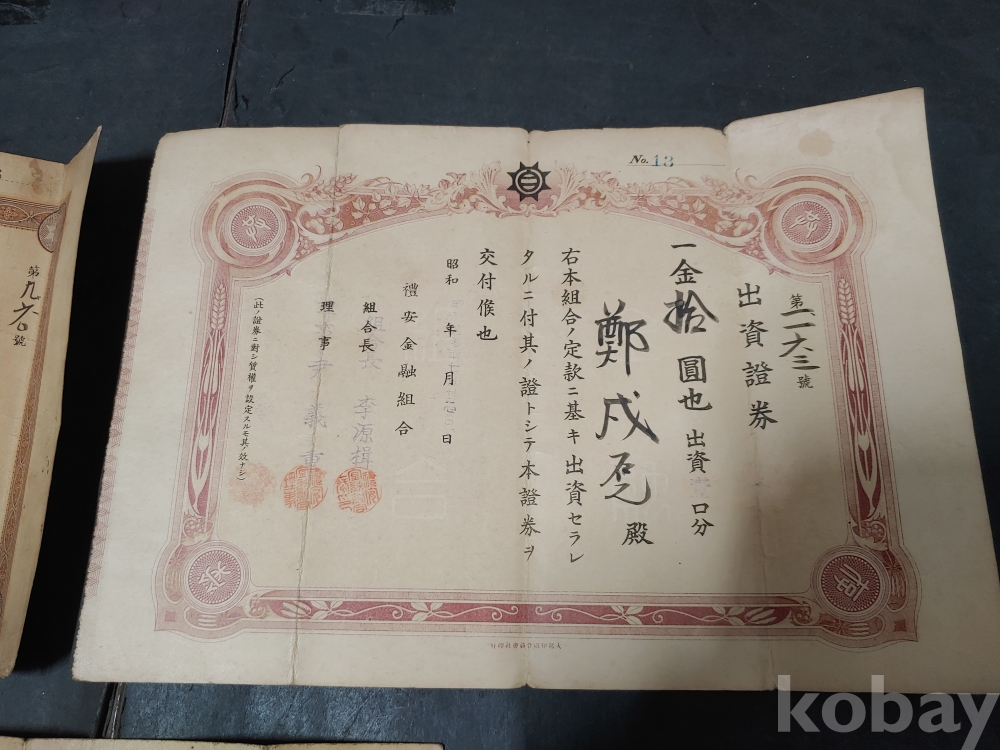 No. 13
出資證券
一金拾圓也 出資壹口分
殿
右本組合ノ定款ニ基キ出資セラレ
タルニ付其ノ證トシテ本證券ヲ
交付候也
昭和 年 月 日
禮安金融組合
組合長 李源揖
理事 義重
(此ノ證券ニ對シ質權ヲ設定スルモ其ノ效ナシ)
第九六〇號
kobay